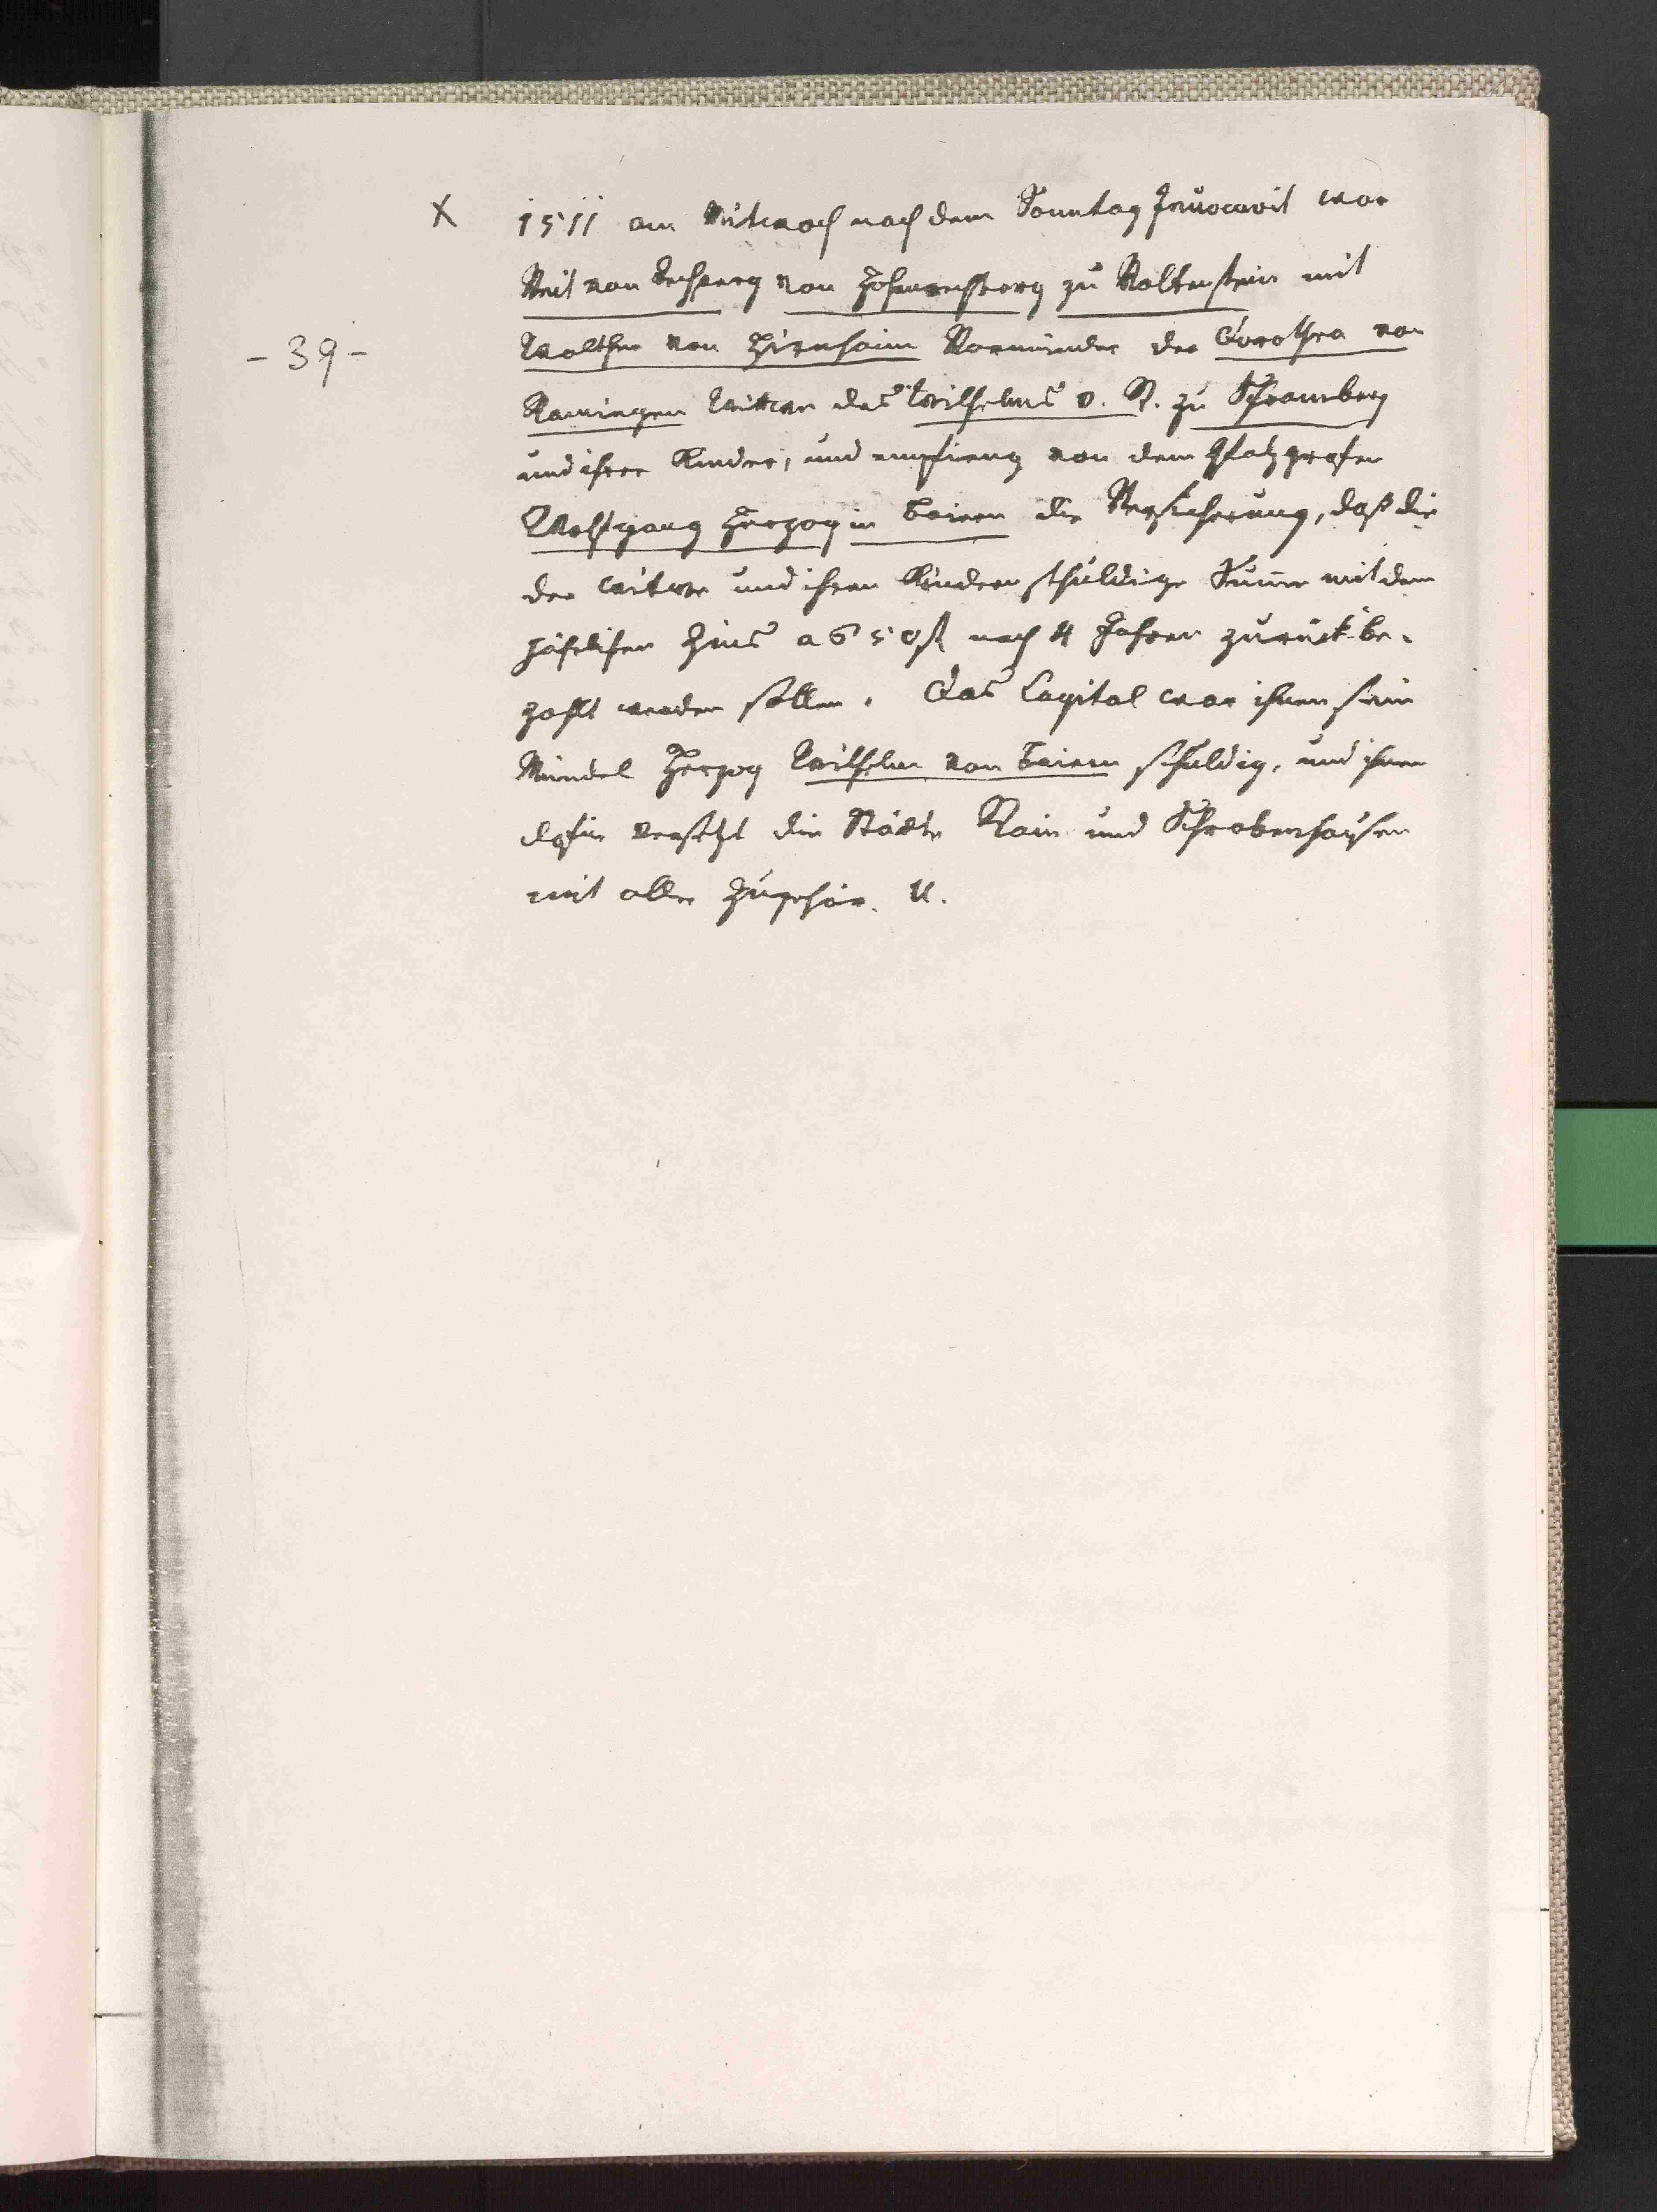 X 1511 am Mittwoch nach dem Sonntag Invocavit war
Veit von Rechperg von Hohenrechperg zu Woltenstein mit
- 39 - Walther von Hirnheim Vormünder der Dorothea von
Ramingen Wittwe des Wilhelms v. R. zu Schramberg
und ihrer Kinder, und empfieng von dem Pfalzgrafen
Wolfgang Herzog in Baiern die Versicherung, daß die
der Witwe und ihren Kindern schuldige Sum̄e mit dem
Zins a 650 fl nach 4 Jahren zurück be-
zahlt werden sollen. Das Capital war ihnen sein
Mündel Herzog Wilhelm von Baiern schuldig, und ihnen
dafür versetzt die Städte Rain und Schrobenhausen
mit aller Zugehör.